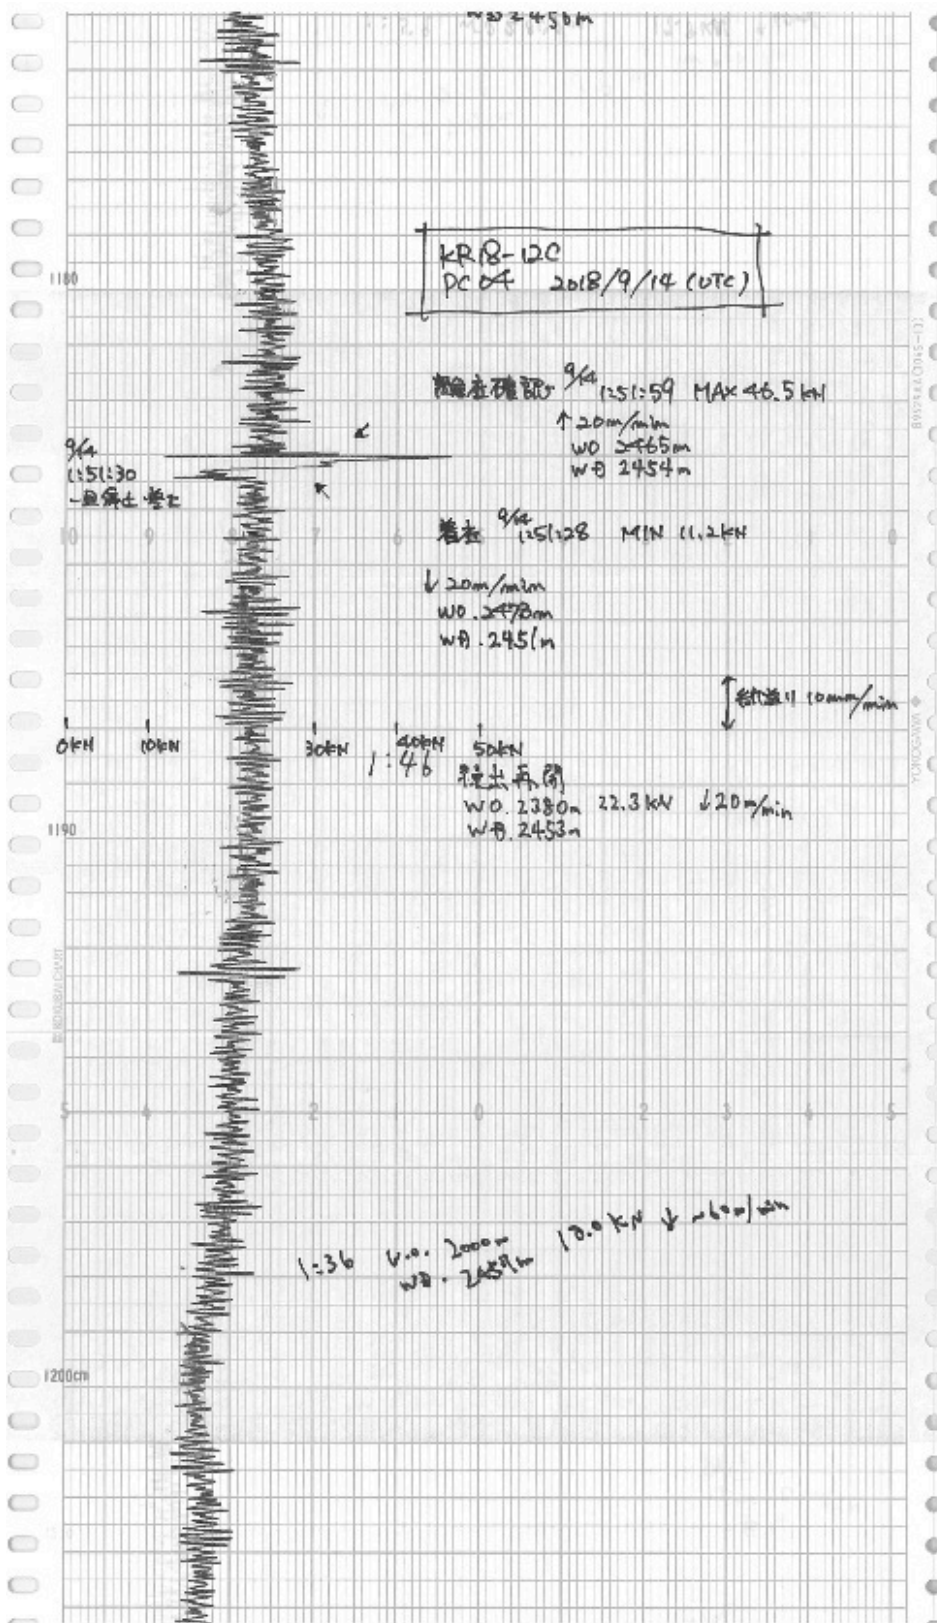 WD 2450m
KR18-12C
PC04 2018/9/14 (UTC)
1180
離底確認 9/14 1:51:59 MAX 46.5kN
↑20m/min
WO 2465m
WD 2454m
9/14
1:51:30
一旦停止
着底 9/14 1:51:28 MIN 11.2kN
10 9 8 7 6 0
↓20m/min
WO. 2478m
WD. 2451m
10mm/min
0kN 10kN 30kN 40kN 50kN
1:46 繰出再開
WO. 2380m 22.3kN ↓20m/min
WD. 2453m
1190
5 4 2 0 2 3 4 5
1:36 W.O. 2000m 18.0kN ↓ ~60m/min
WD.
1200cm
YOKOGAWA